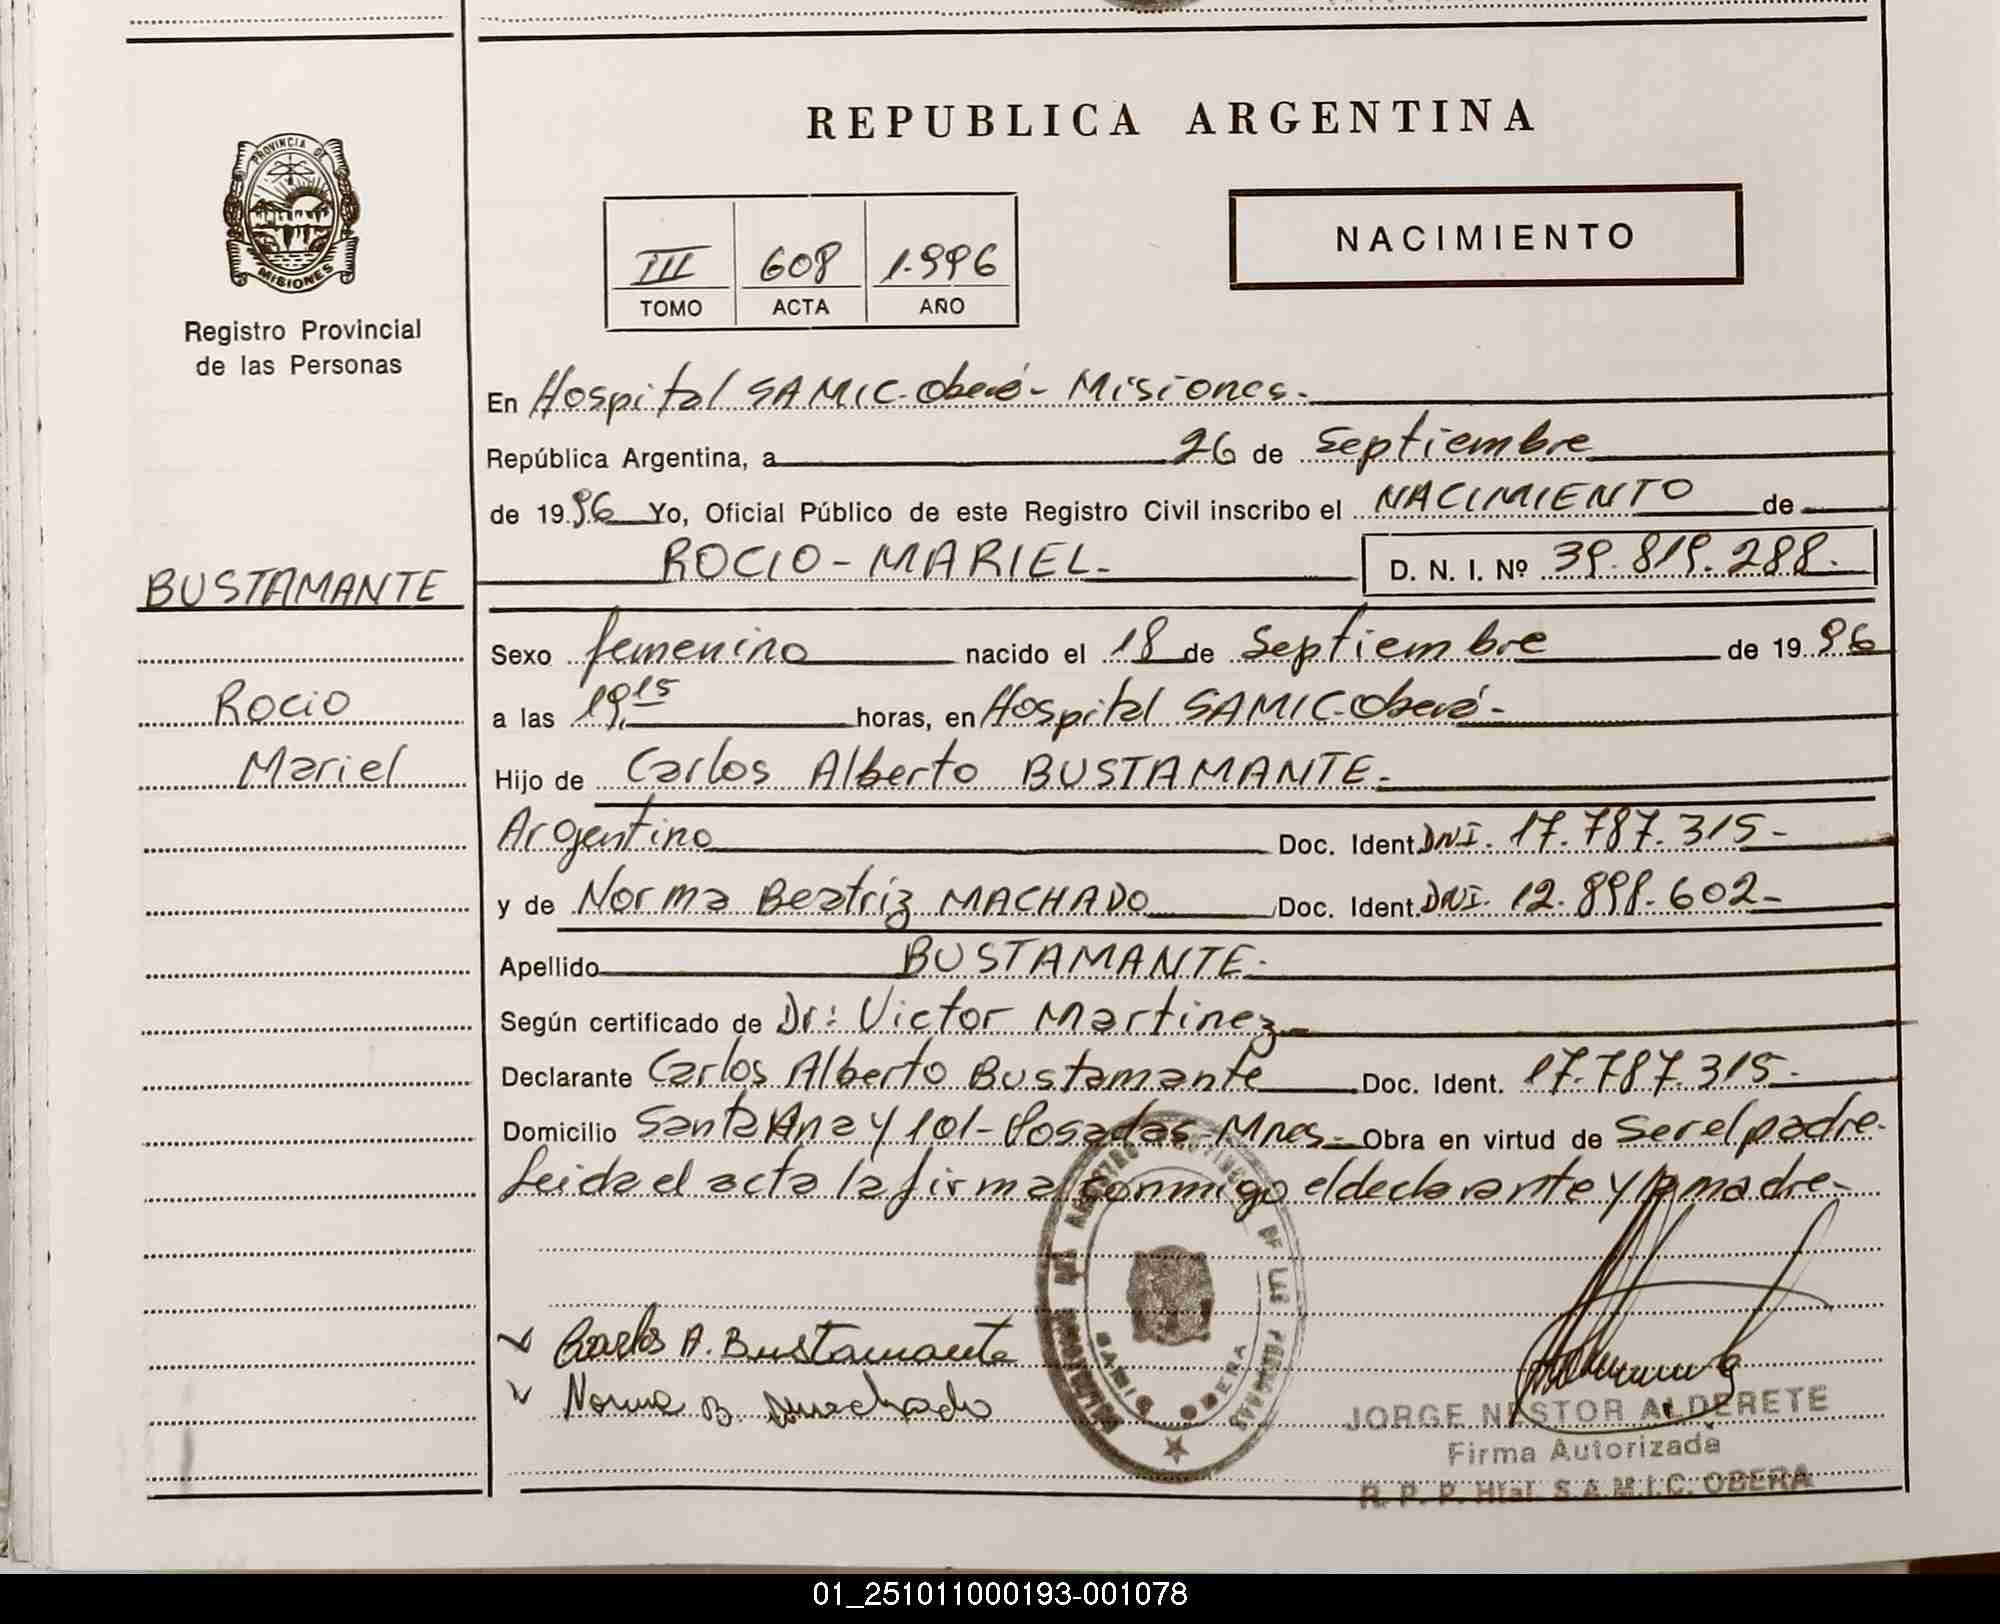 REPUBLICA ARGENTINA
PROVINCIA DE
MISIONES
Registro Provincial
de las Personas
III 608 1.996
TOMO ACTA AÑO
NACIMIENTO
En Hospital SAMIC-Oberá- Misiones.
República Argentina, a 26 de Septiembre
de 1996 Yo, Oficial Público de este Registro Civil inscribo el NACIMIENTO de
ROCIO-MARIEL- D. N. I. Nº 39.819.288.
BUSTAMANTE
Sexo femenino nacido el 18 de Septiembre de 1996
Rocio
a las 19,15 horas, en Hospital SAMIC-Oberá-
Mariel
Hijo de Carlos Alberto BUSTAMANTE-
Argentino Doc. Ident. DNI. 17.787.315-
y de Norma Beatriz MACHADO Doc. Ident. DNI. 12.898.602-
Apellido BUSTAMANTE-
Según certificado de Dr: Victor Martinez-
Declarante Carlos Alberto Bustamante Doc. Ident. 17.787.315-
Domicilio Santa Ana y 101- Posadas-Mnes- Obra en virtud de ser el padre-
Leida el acta la firma conmigo el declarante y la madre-
Carlos A. Bustamante
Norma B. Machado
SAMIC OBERA
JORGE NESTOR ALDERETE
Firma Autorizada
R. P. P. Htal. S.A.M.I.C. OBERA
01_251011000193-001078